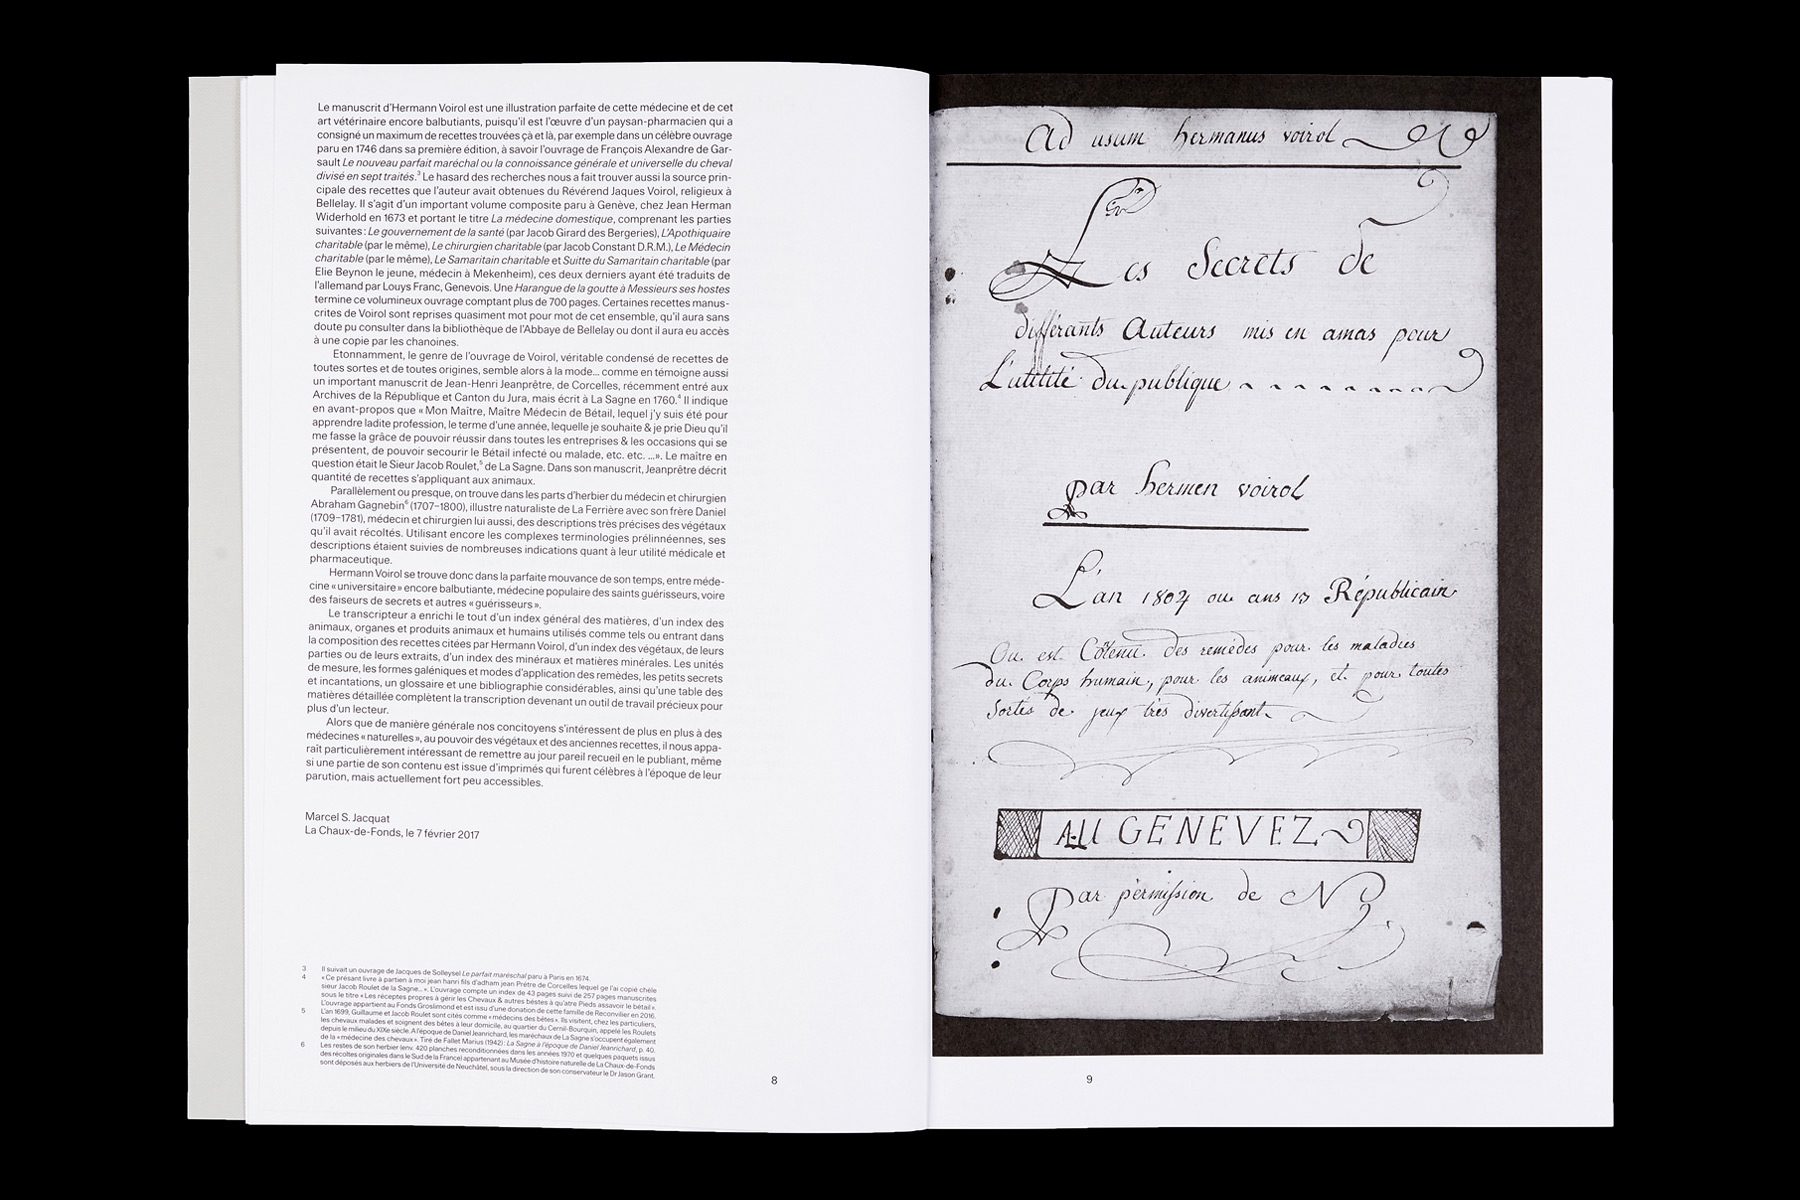 Le manuscrit d'Hermann Voirol est une illustration parfaite de cette médecine et de cet
art vétérinaire encore balbutiants, puisqu'il est l'œuvre d'un paysan-pharmacien qui a
consigné un maximum de recettes trouvées çà et là, par exemple dans un célèbre ouvrage
paru en 1746 dans sa première édition, à savoir l'ouvrage de François Alexandre de Gar-
sault Le nouveau parfait maréchal ou la connoissance générale et universelle du cheval
divisé en sept traités.³ Le hasard des recherches nous a fait trouver aussi la source prin-
cipale des recettes que l'auteur avait obtenues du Révérend Jaques Voirol, religieux à
Bellelay. Il s'agit d'un important volume composite paru à Genève, chez Jean Herman
Widerhold en 1673 et portant le titre La médecine domestique, comprenant les parties
suivantes : Le gouvernement de la santé (par Jacob Girard des Bergeries), L'Apothiquaire
charitable (par le même), Le chirurgien charitable (par Jacob Constant D.R.M.), Le Médecin
charitable (par le même), Le Samaritain charitable et Suitte du Samaritain charitable (par
Elie Beynon le jeune, médecin à Mekenheim), ces deux derniers ayant été traduits de
l'allemand par Louys Franc, Genevois. Une Harangue de la goutte à Messieurs ses hostes
termine ce volumineux ouvrage comptant plus de 700 pages. Certaines recettes manus-
crites de Voirol sont reprises quasiment mot pour mot de cet ensemble, qu'il aura sans
doute pu consulter dans la bibliothèque de l'Abbaye de Bellelay ou dont il aura eu accès
à une copie par les chanoines.
Etonnamment, le genre de l'ouvrage de Voirol, véritable condensé de recettes de
toutes sortes et de toutes origines, semble alors à la mode... comme en témoigne aussi
un important manuscrit de Jean-Henri Jeanprêtre, de Corcelles, récemment entré aux
Archives de la République et Canton du Jura, mais écrit à La Sagne en 1760.⁴ Il indique
en avant-propos que « Mon Maître, Maître Médecin de Bétail, lequel j'y suis été pour
apprendre ladite profession, le terme d'une année, lequelle je souhaite & je prie Dieu qu'il
me fasse la grâce de pouvoir réussir dans toutes les entreprises & les occasions qui se
présentent, de pouvoir secourir le Bétail infecté ou malade, etc. etc. ...». Le maître en
question était le Sieur Jacob Roulet,⁵ de La Sagne. Dans son manuscrit, Jeanprêtre décrit
quantité de recettes s'appliquant aux animaux.
Parallèlement ou presque, on trouve dans les parts d'herbier du médecin et chirurgien
Abraham Gagnebin⁶ (1707–1800), illustre naturaliste de La Ferrière avec son frère Daniel
(1709–1781), médecin et chirurgien lui aussi, des descriptions très précises des végétaux
qu'il avait récoltés. Utilisant encore les complexes terminologies prélinnéennes, ses
descriptions étaient suivies de nombreuses indications quant à leur utilité médicale et
pharmaceutique.
Hermann Voirol se trouve donc dans la parfaite mouvance de son temps, entre méde-
cine « universitaire » encore balbutiante, médecine populaire des saints guérisseurs, voire
des faiseurs de secrets et autres « guérisseurs ».
Le transcripteur a enrichi le tout d'un index général des matières, d'un index des
animaux, organes et produits animaux et humains utilisés comme tels ou entrant dans
la composition des recettes citées par Hermann Voirol, d'un index des végétaux, de leurs
parties ou de leurs extraits, d'un index des minéraux et matières minérales. Les unités
de mesure, les formes galéniques et modes d'application des remèdes, les petits secrets
et incantations, un glossaire et une bibliographie considérables, ainsi qu'une table des
matières détaillée complètent la transcription devenant un outil de travail précieux pour
plus d'un lecteur.
Alors que de manière générale nos concitoyens s'intéressent de plus en plus à des
médecines « naturelles », au pouvoir des végétaux et des anciennes recettes, il nous appa-
raît particulièrement intéressant de remettre au jour pareil recueil en le publiant, même
si une partie de son contenu est issue d'imprimés qui furent célèbres à l'époque de leur
parution, mais actuellement fort peu accessibles.
Marcel S. Jacquat
La Chaux-de-Fonds, le 7 février 2017
3 Il suivait un ouvrage de Jacques de Solleysel Le parfait mareschal paru à Paris en 1674.
4 « Ce présant livre à partien à moi jean hanri fils d'adham jean Prétre de Corcelles lequel ge l'ai copié chéle
sieur Jacob Roulet de la Sagne... ». L'ouvrage compte un index de 43 pages suivi de 257 pages manuscrites
sous le titre « Les réceptes propres à gérir les Chevaux & autres béstes à qu'atre Pieds assavoir le bétail ».
L'ouvrage appartient au Fonds Groslimond et est issu d'une donation de cette famille de Reconvilier en 2016.
5 L'an 1699, Guillaume et Jacob Roulet sont cités comme « médecins des bêtes ». Ils visitent, chez les particuliers,
les chevaux malades et soignent des bêtes à leur domicile, au quartier du Cernil-Bourquin, appelé les Roulets
depuis le milieu du XIXe siècle. A l'époque de Daniel Jeanrichard, les maréchaux de La Sagne s'occupent également
de la « médecine des chevaux ». Tiré de Fallet Marius (1942) : La Sagne à l'époque de Daniel Jeanrichard, p. 40.
6 Les restes de son herbier (env. 420 planches reconditionnées dans les années 1970 et quelques paquets issus
des récoltes originales dans le Sud de la France) appartenant au Musée d'histoire naturelle de La Chaux-de-Fonds
sont déposés aux herbiers de l'Université de Neuchâtel, sous la direction de son conservateur le Dr Jason Grant.
8
Ad usum hermanus voirol
Les Secrets de
différants Auteurs mis en amas pour
L'utilité du publique
par hermen voirol
L'an 1804 ou ans 13 Républicain
Ou est Côtenu des remèdes pour les maladies
du Corps humain, pour les animeaux, et pour toutes
Sortes de jeux très divertissant
AU GENEVEZ
Par permission de N
9